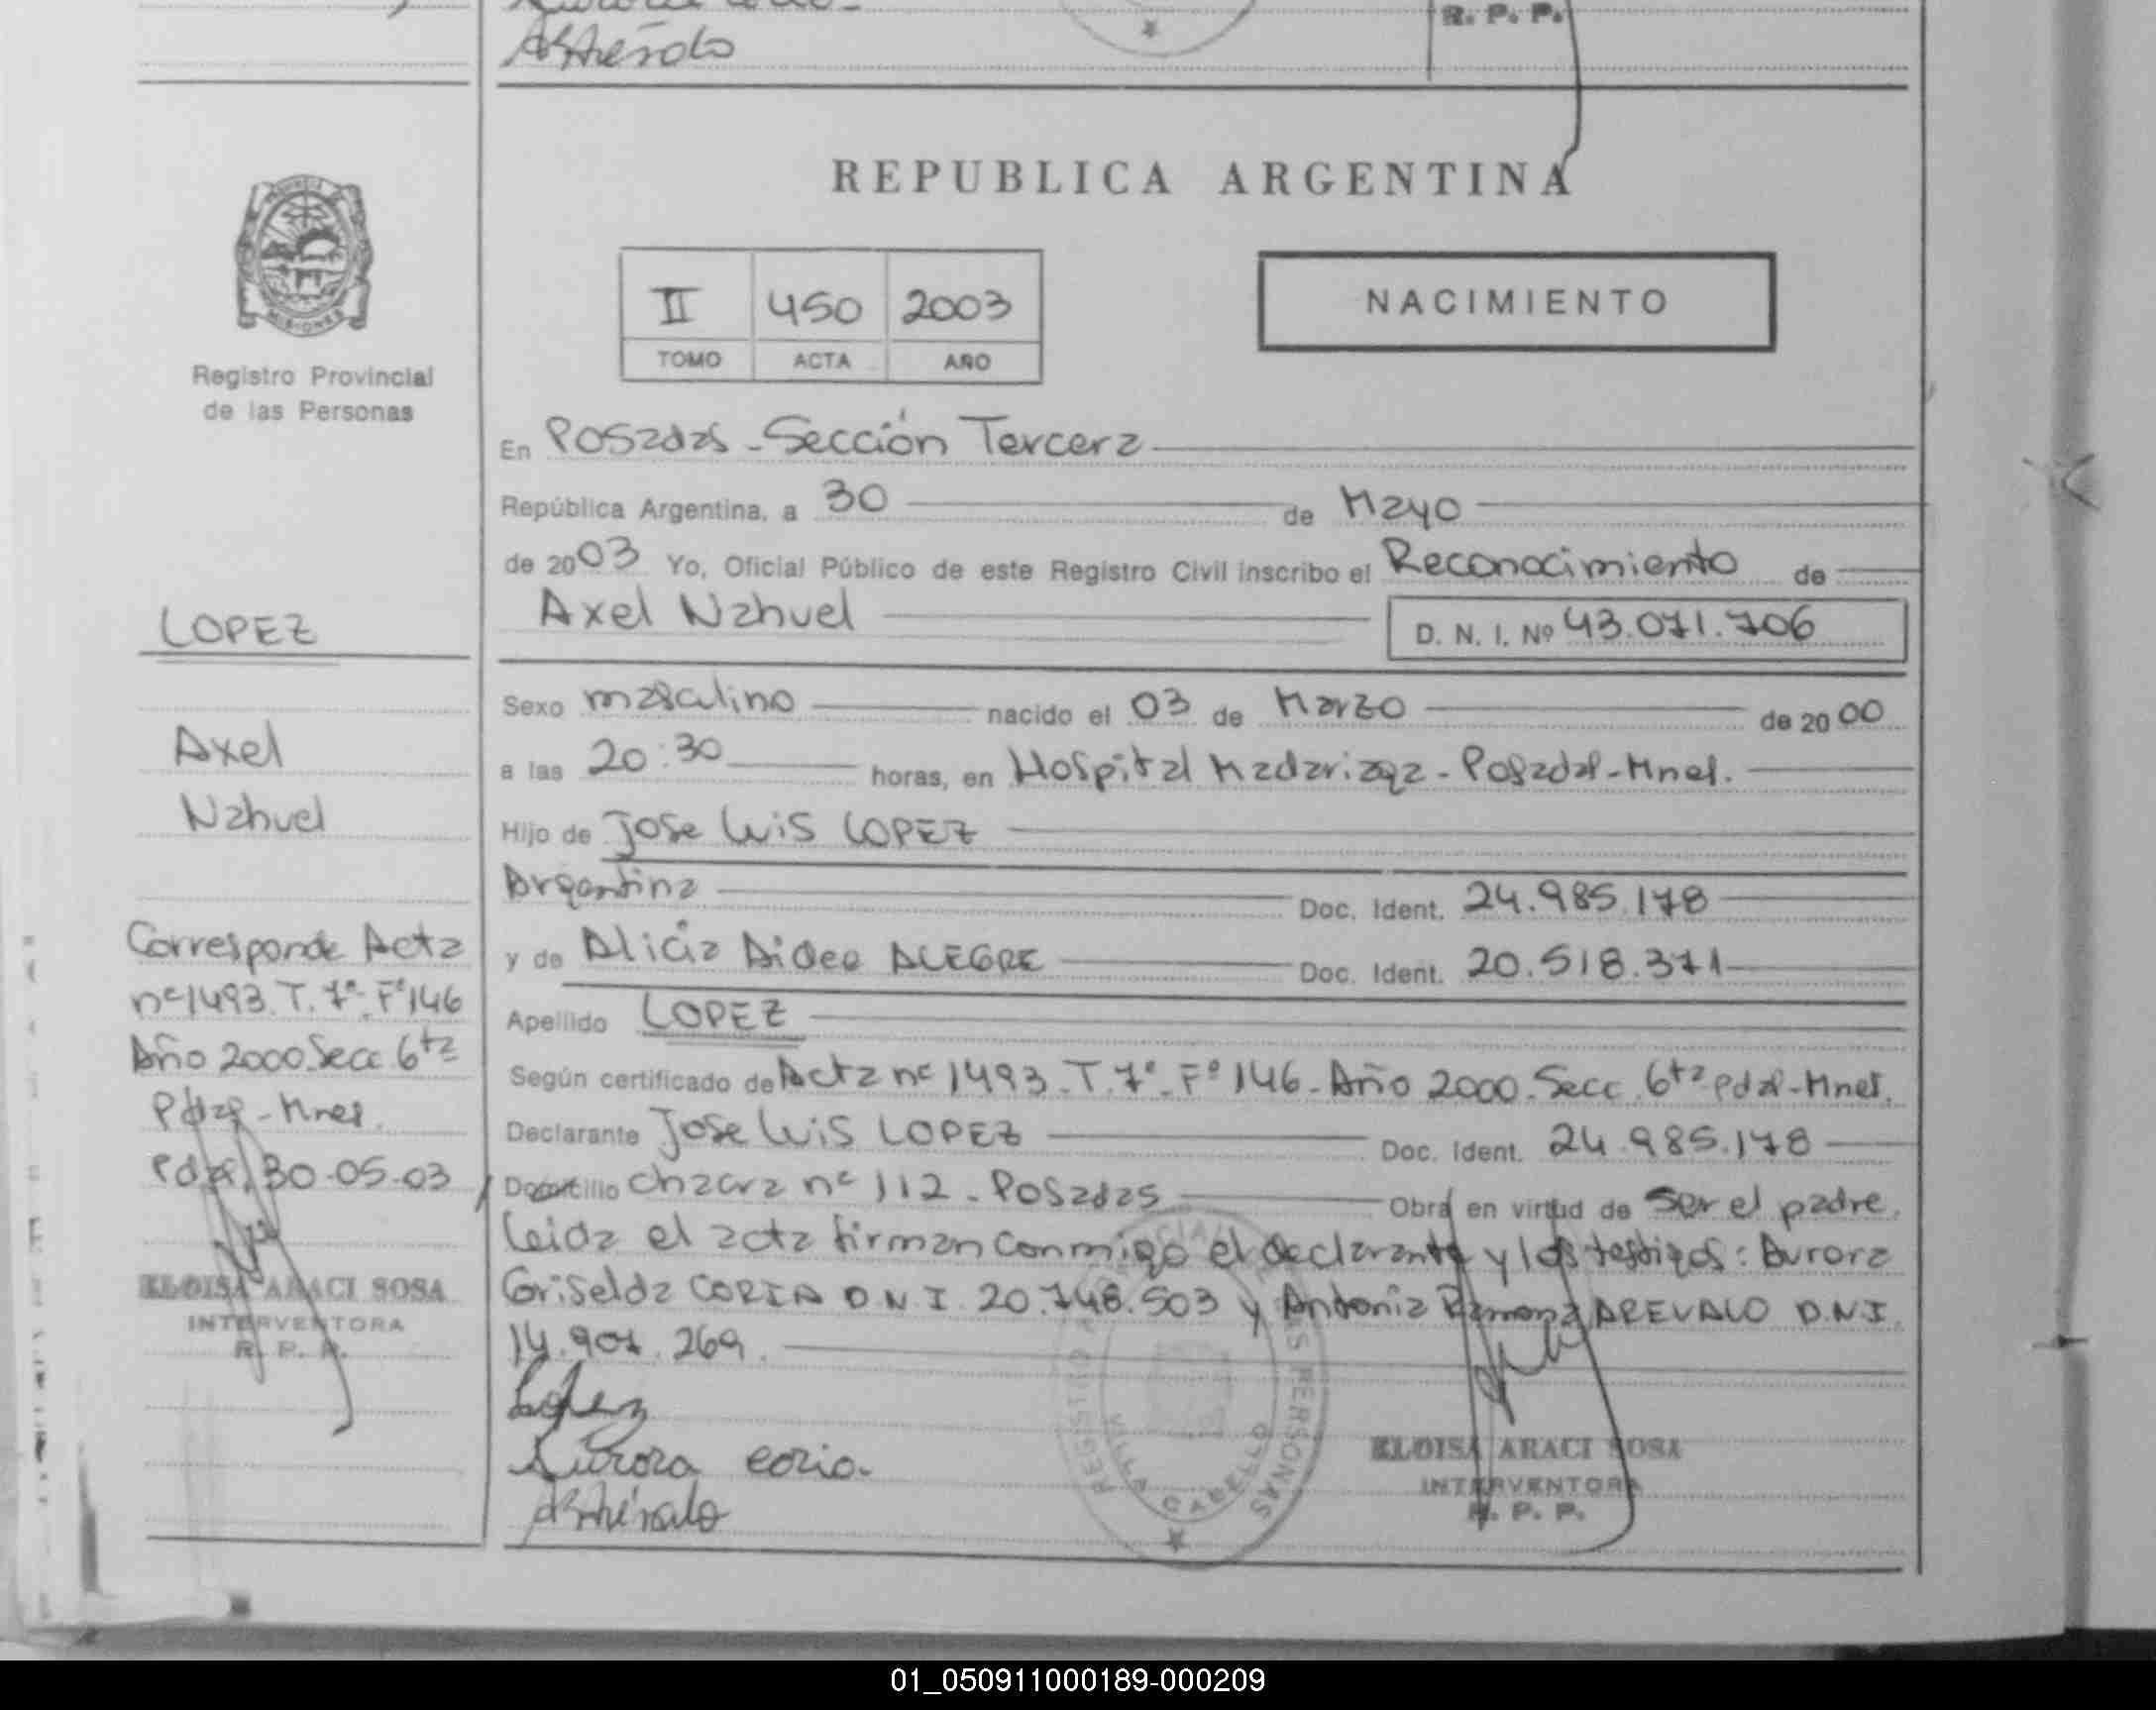 R. P. P.
REPUBLICA ARGENTINA
II 450 2003
TOMO ACTA AÑO
NACIMIENTO
MISIONES
Registro Provincial
de las Personas
LOPEZ
Axel
Nahuel
Corresponde Acta
nº 1493. T. 7º. Fº 146
Año 2000. Secc 6ta
Pdas - Mnes.
Pdas, 30-05-03
ELOISA ARACI SOSA
INTERVENTORA
R. P. P.
En Posadas - Sección Tercera
República Argentina, a 30 de Mayo
de 2003 Yo, Oficial Público de este Registro Civil inscribo el Reconocimiento de
Axel Nahuel D. N. I. Nº 43.071.706
Sexo masculino nacido el 03 de Marzo de 2000
a las 20:30 horas, en Hospital Madariaga - Posadas - Mnes.
Hijo de Jose Luis LOPEZ
Argentina Doc. Ident. 24.985.178
y de Alicia Aidee ALEGRE Doc. Ident. 20.518.371
Apellido LOPEZ
Según certificado de Acta nº 1493. T. 7º. Fº 146 - Año 2000. Secc. 6ta Pdas - Mnes.
Declarante Jose Luis LOPEZ Doc. Ident. 24.985.178
Domicilio Chacra nº 112 - Posadas Obra en virtud de Ser el padre.
Leida el acta firman conmigo el declarante y los testigos: Aurora
Griselda CORIA D.N.I. 20.748.503 y Antonia Ramona AREVALO D.N.I.
14.907.269.
Lopez
Aurora Coria.
REGISTRO PERSONAS
VILLA CABELLO
ELOISA ARACI SOSA
INTERVENTORA
R. P. P.
01_050911000189-000209